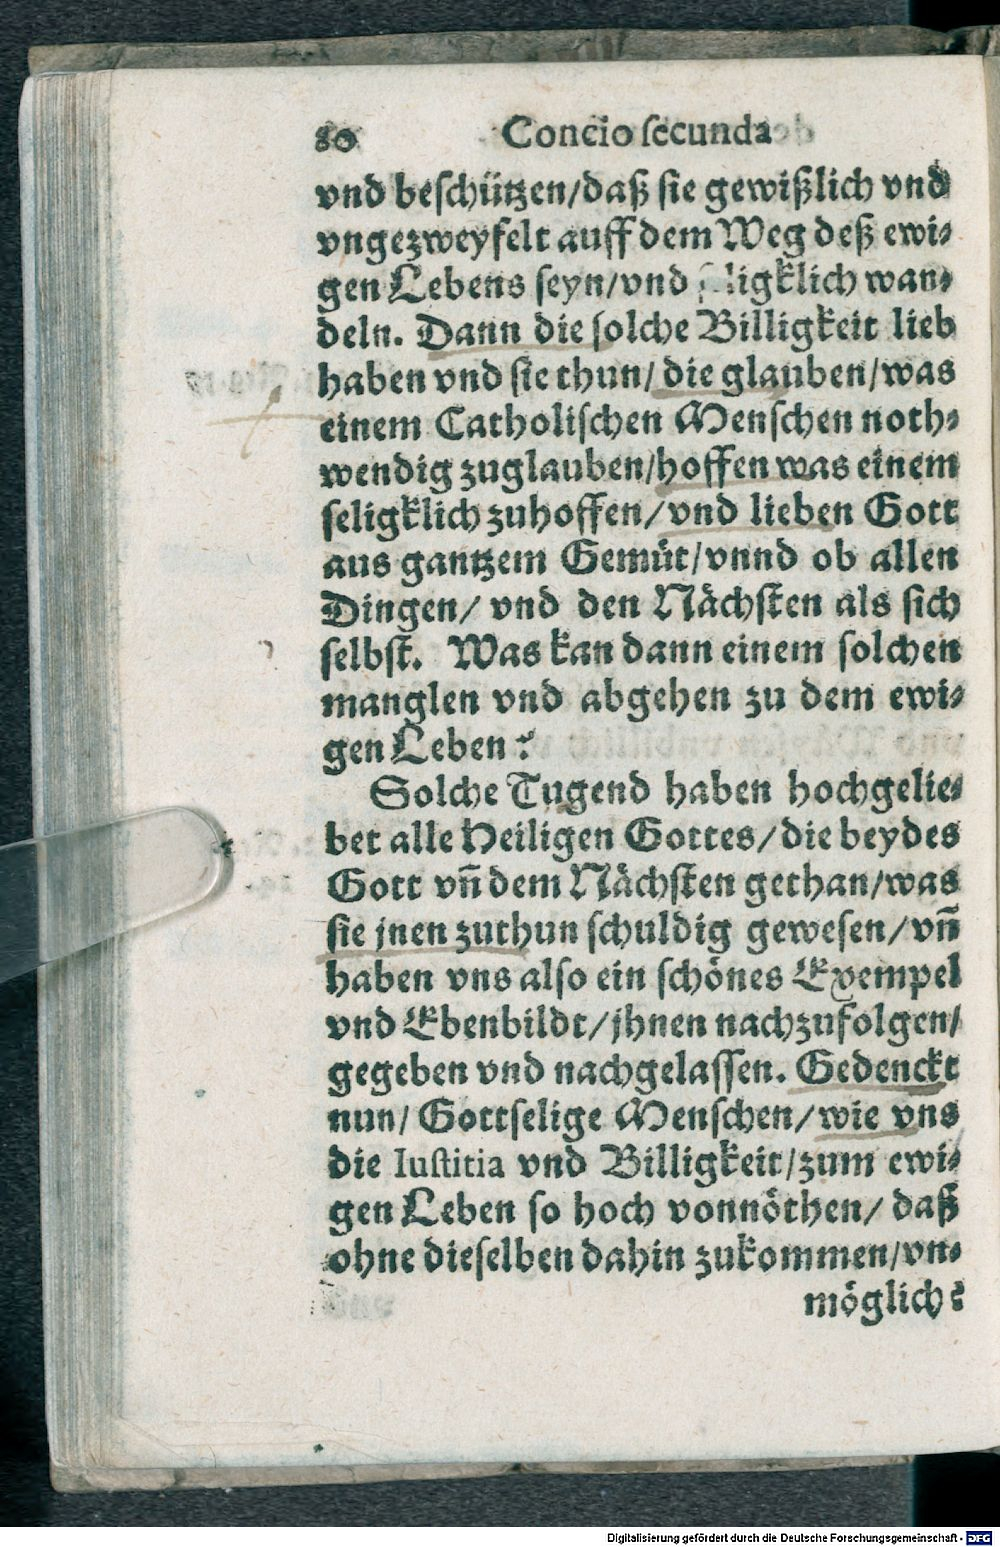 80 Concio secunda
vnd beschützen/daß sie gewißlich vnd
vngezweyfelt auff dem Weg deß ewi⸗
gen Lebens seyn/vnd wan⸗
deln. Dann die solche Billigkeit lieb
haben vnd sie thun/ die glauben/was
einem Catholischen Menschen noth⸗
wendig zuglauben/hoffen was einem
seligklich zuhoffen/vnd lieben Gott
aus gantzem Gemüt/vnnd ob allen
Dingen/ vnd den Nächsten als sich
selbst. Was kan dann einem solchen
manglen vnd abgehen zu dem ewi⸗
gen Leben?
Solche Tugend haben hochgelie⸗
bet alle Heiligen Gottes/die beydes
Gott vñ dem Nächsten gethan/was
sie jnen zuthun schuldig gewesen/vñ
haben vns also ein schönes Exempel
vnd Ebenbildt/jhnen nachzufolgen/
gegeben vnd nachgelassen. Gedenckt
nun/ Gottselige Menschen/wie vns
die Iustitia vnd Billigkeit/zum ewi⸗
gen Leben so hoch vonnöthen/ daß
ohne dieselben dahin zukommen/vn⸗
möglich:
Digitalisierung gefördert durch die Deutsche Forschungsgemeinschaft - DFG